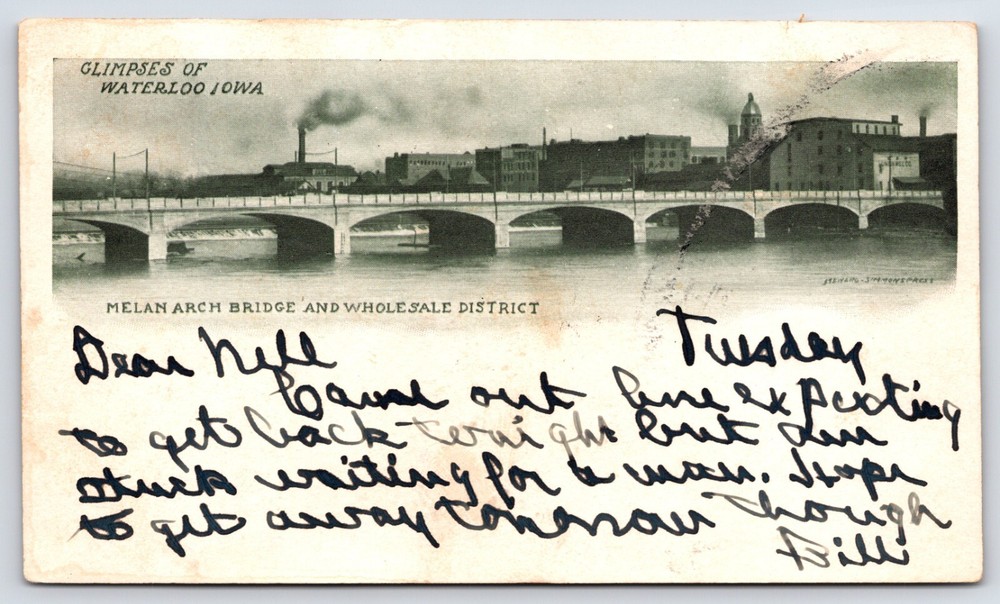 GLIMPSES OF
WATERLOO IOWA
MELAN ARCH BRIDGE AND WHOLESALE DISTRICT
Tuesday
Dear Nell
Came out here expecting
to get back tonight but am
stuck waiting for a man. Hope
to get away tomorrow though
Bill